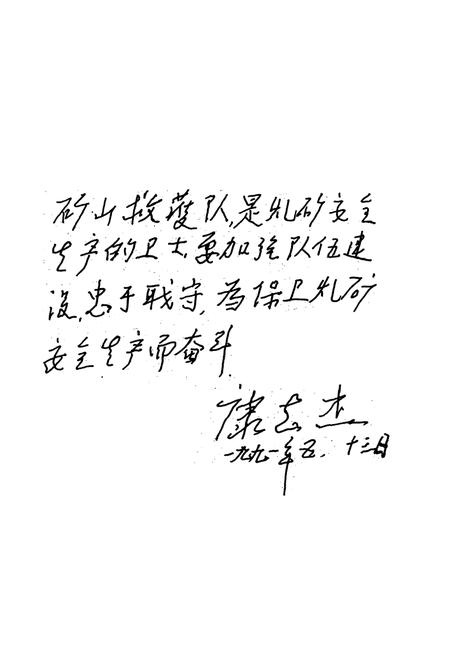 矿山救護队,是扎矿安全
生产的卫士,要加强队伍建
设,忠于職守,為保卫扎矿
安全生产而奋斗.
康志杰
一九九一年五.十三日